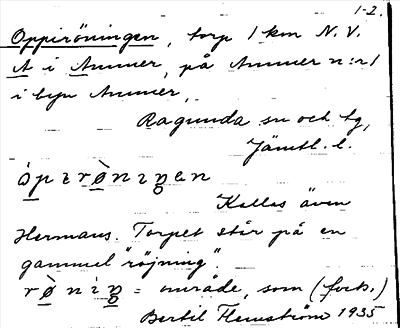 1-2.
Oppiröningen, torp 1 km N.V.
A i Ammer, på Ammer n:r 1
i byn Ammer,
Ragunda sn och tg,
Jämtl. l.
Kallas även
Hermans. Torpet står på en
gammel "röjning"
= område, som (forts.)
Bertil Flemström 1935